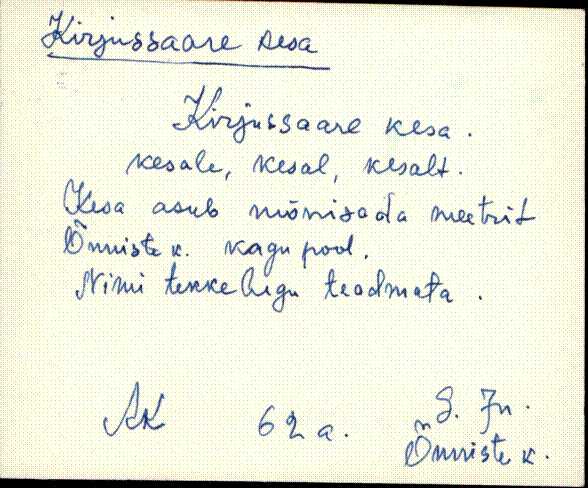 Kirjussaare kesa
Kirjussaare kesa.
kesale, kesal, kesalt.
Kesa asub mõnisada meetrit
Õnniste k. kagu pool.
Nimi tekkelugu teadmata.
AK 62 a. S. Jn.
Õnniste k.